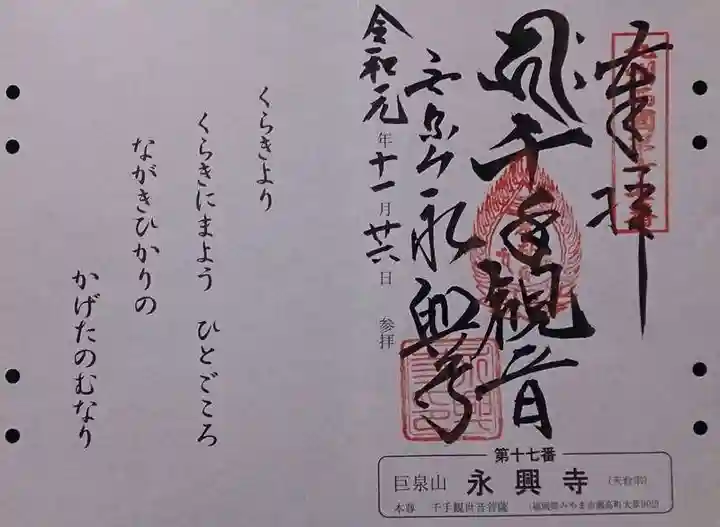 奉拝
千手観音
巨泉山 永興寺
令和元年十一月廿六日 参拝
第十七番
巨泉山 永興寺 (天台宗)
本尊 千手観世音菩薩 (福岡県みやま市瀬高町大草
くらきより
くらきにまよう ひとごころ
ながきひかりの
かげたのむなり